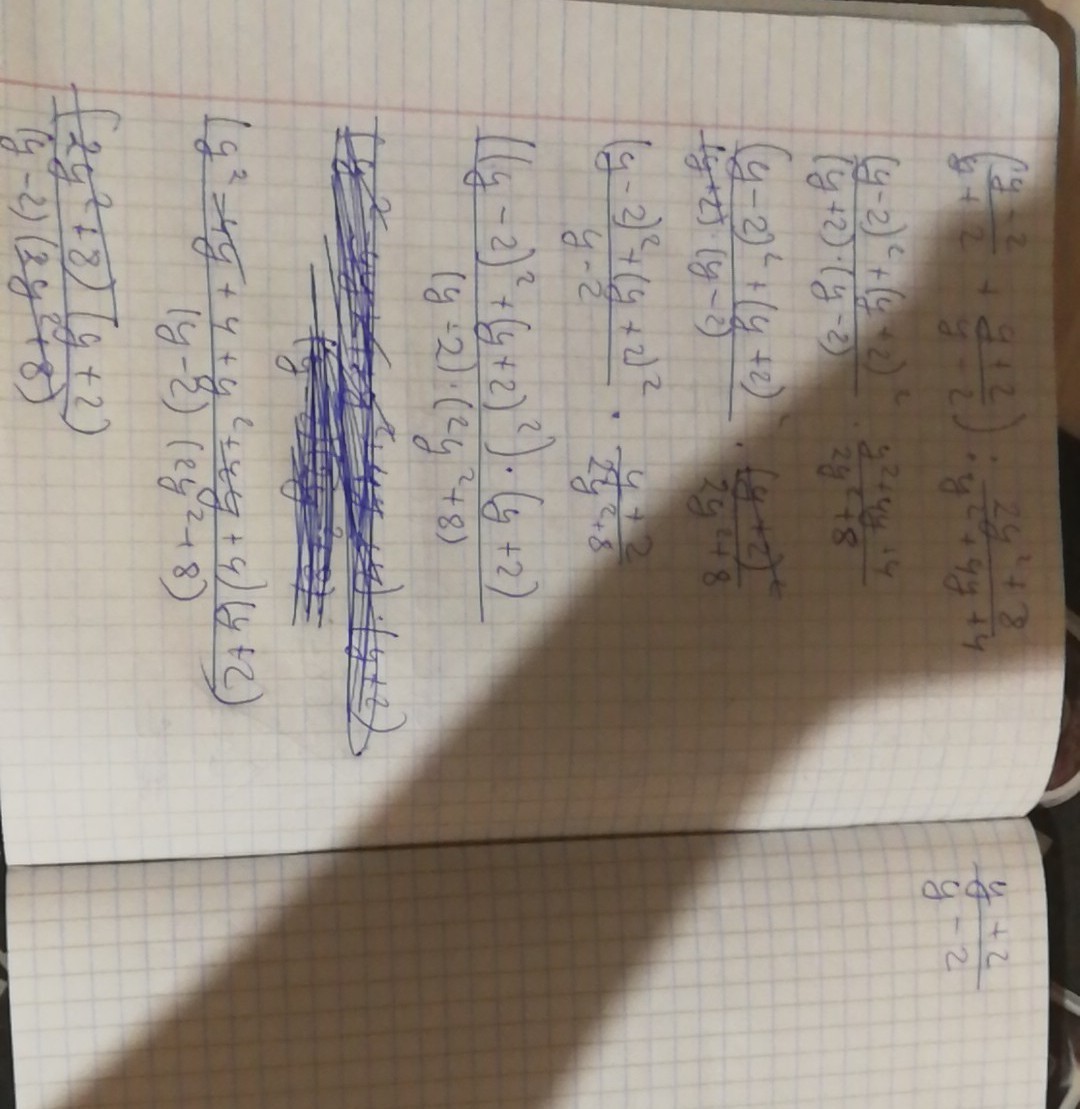 (y-2/y+2 + y+2/y-2) : 2y²+8/y²+4y+4
(y-2)²+(y+2)²/(y+2)·(y-2) · y²+4y+4/2y²+8
(y-2)²+(y+2)²/(y+2)·(y-2) · (y+2)²/2y²+8
(y-2)²+(y+2)²/y-2 · y+2/2y²+8
((y-2)²+(y+2)²)·(y+2)/(y-2)·(2y²+8)
(y²-4y+4+y²+4y+4)(y+2)/(y-2)(2y²+8)
(2y²+8)(y+2)/(y-2)(2y²+8)
y+2/y-2